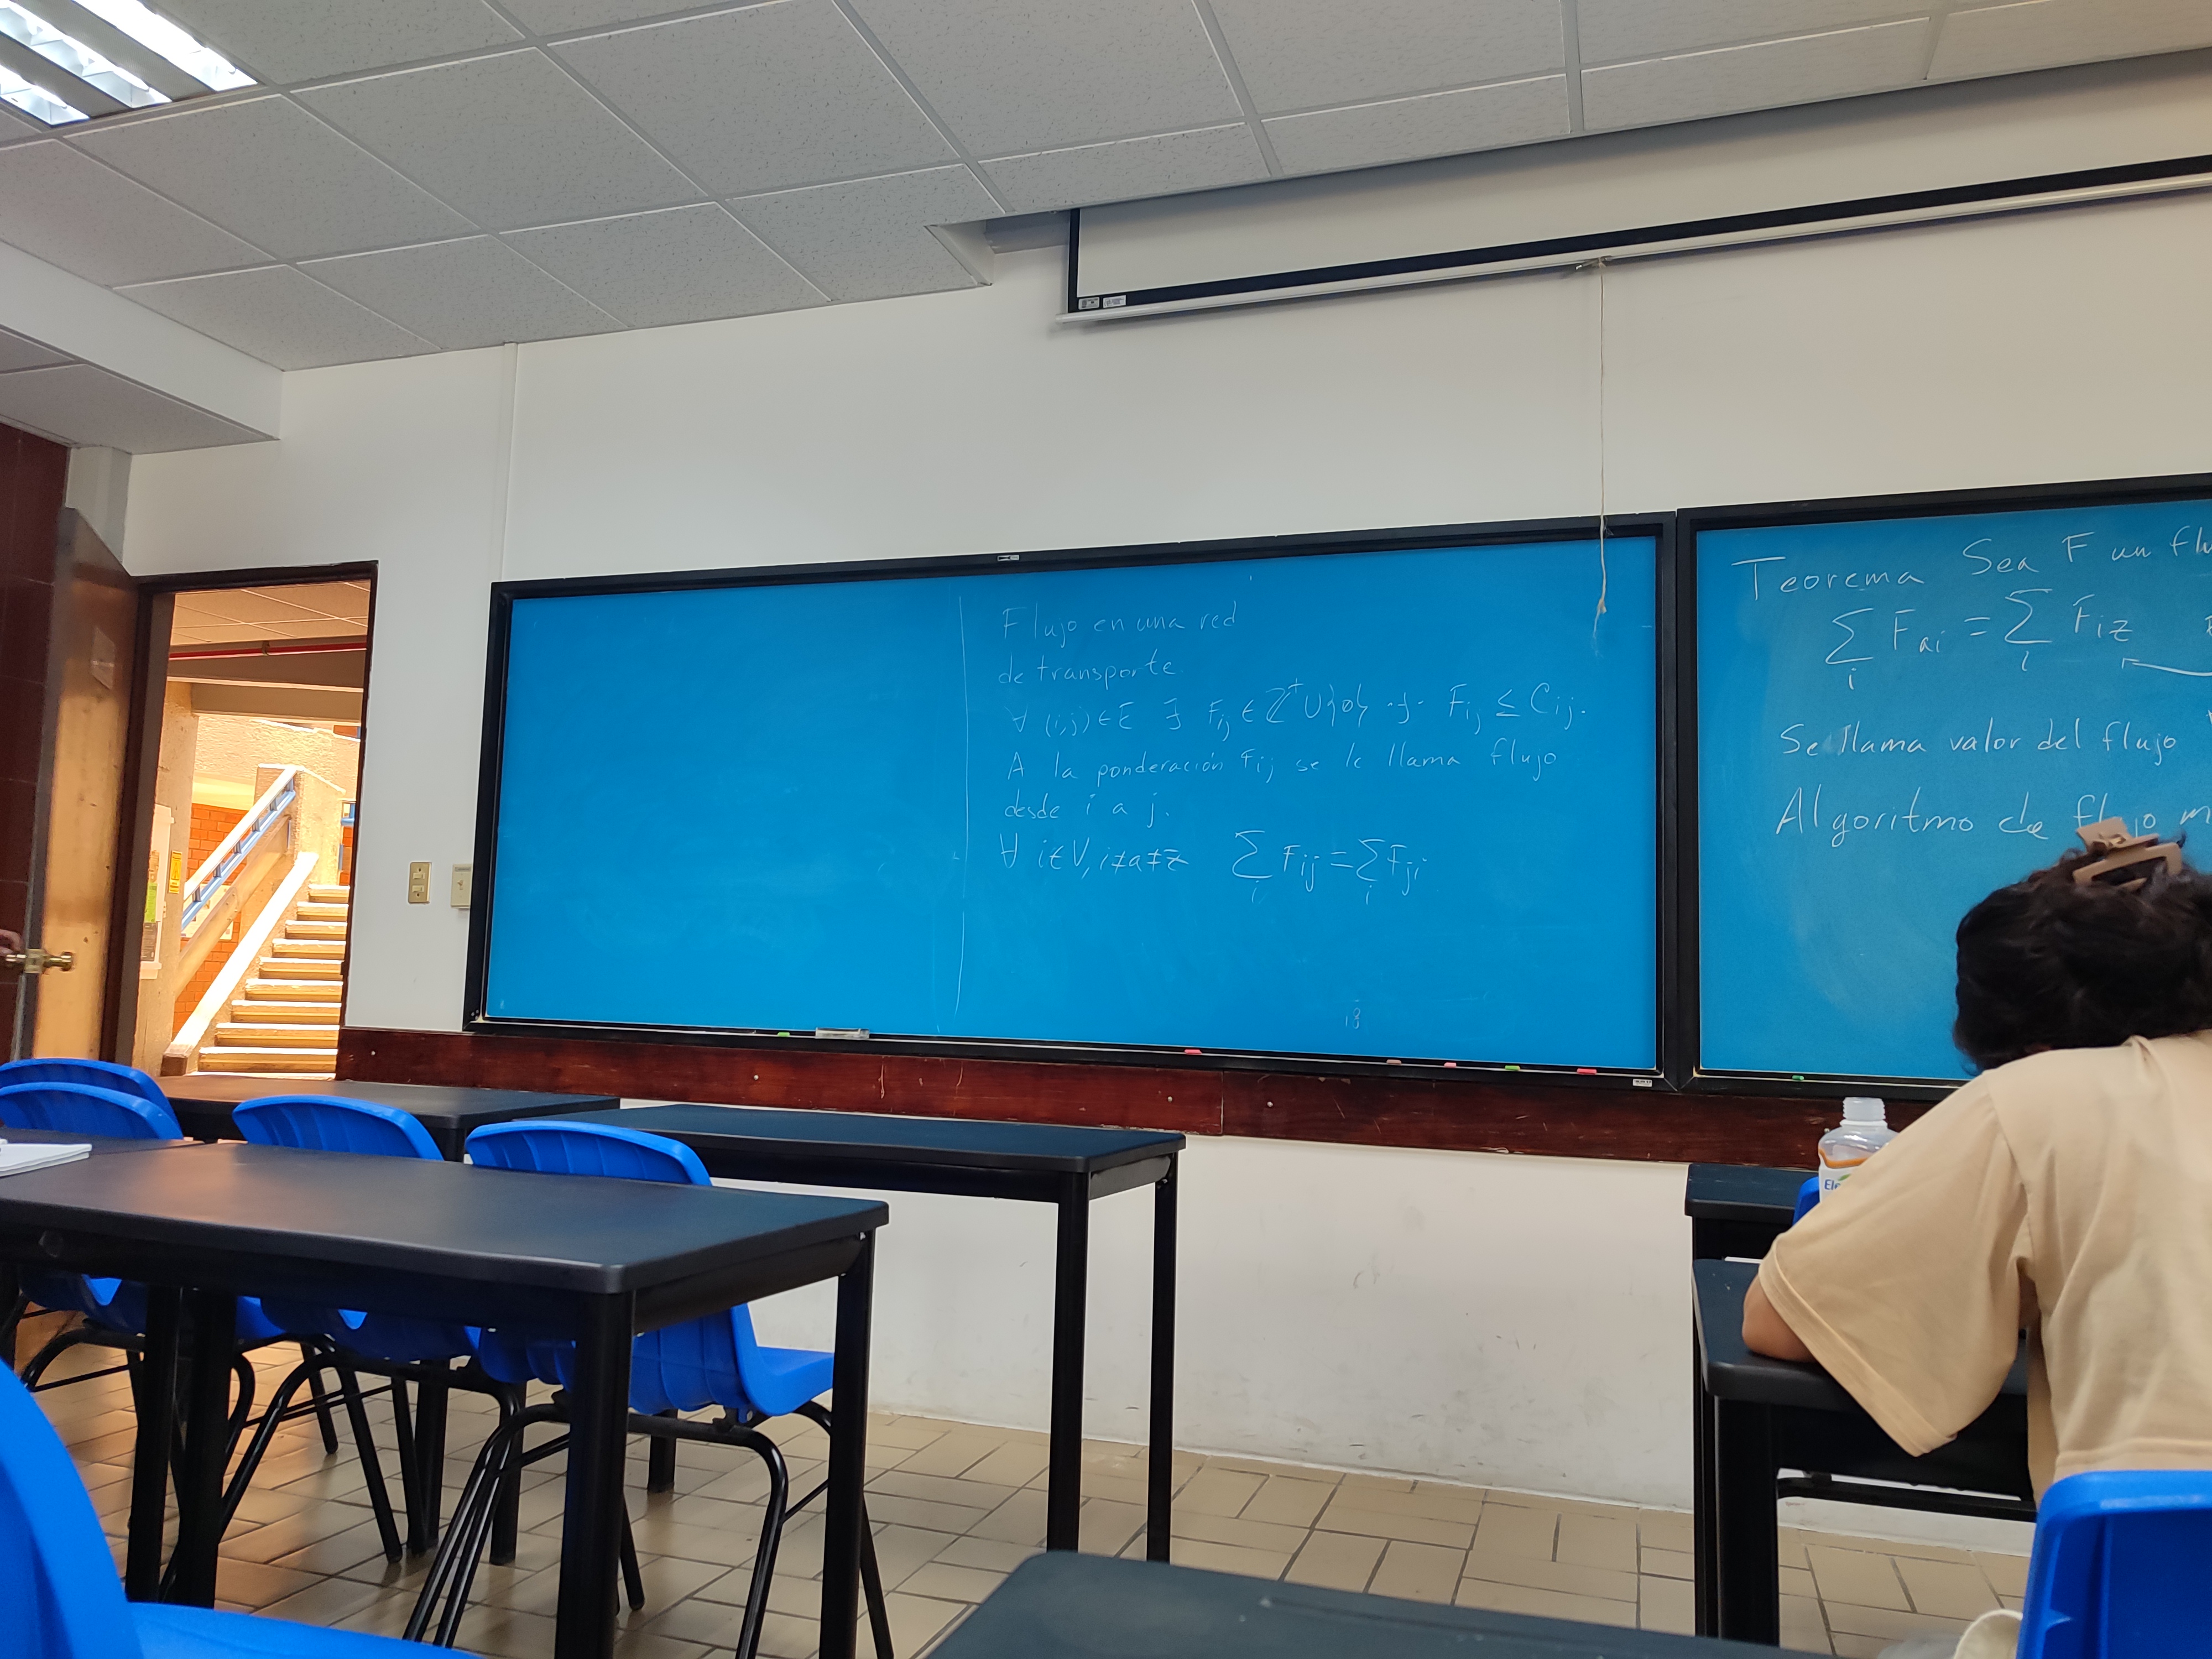 Flujo en una red
de transporte.
∀ (i,j) ∈ E ∃ Fij ∈ Z⁺ ∪ {0} ·Ǝ· Fij ≤ Cij.
A la ponderación Fij se le llama flujo
desde i a j.
∀ i ∈ V, i ≠ a ≠ z ∑i Fij = ∑i Fji
Teorema Sea F un flu
∑i Fai = ∑i Fiz
Se llama valor del flujo
Algoritmo de flujo m
Ele